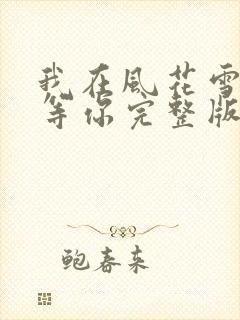 我在風花雪
等你完整版
鲍春来